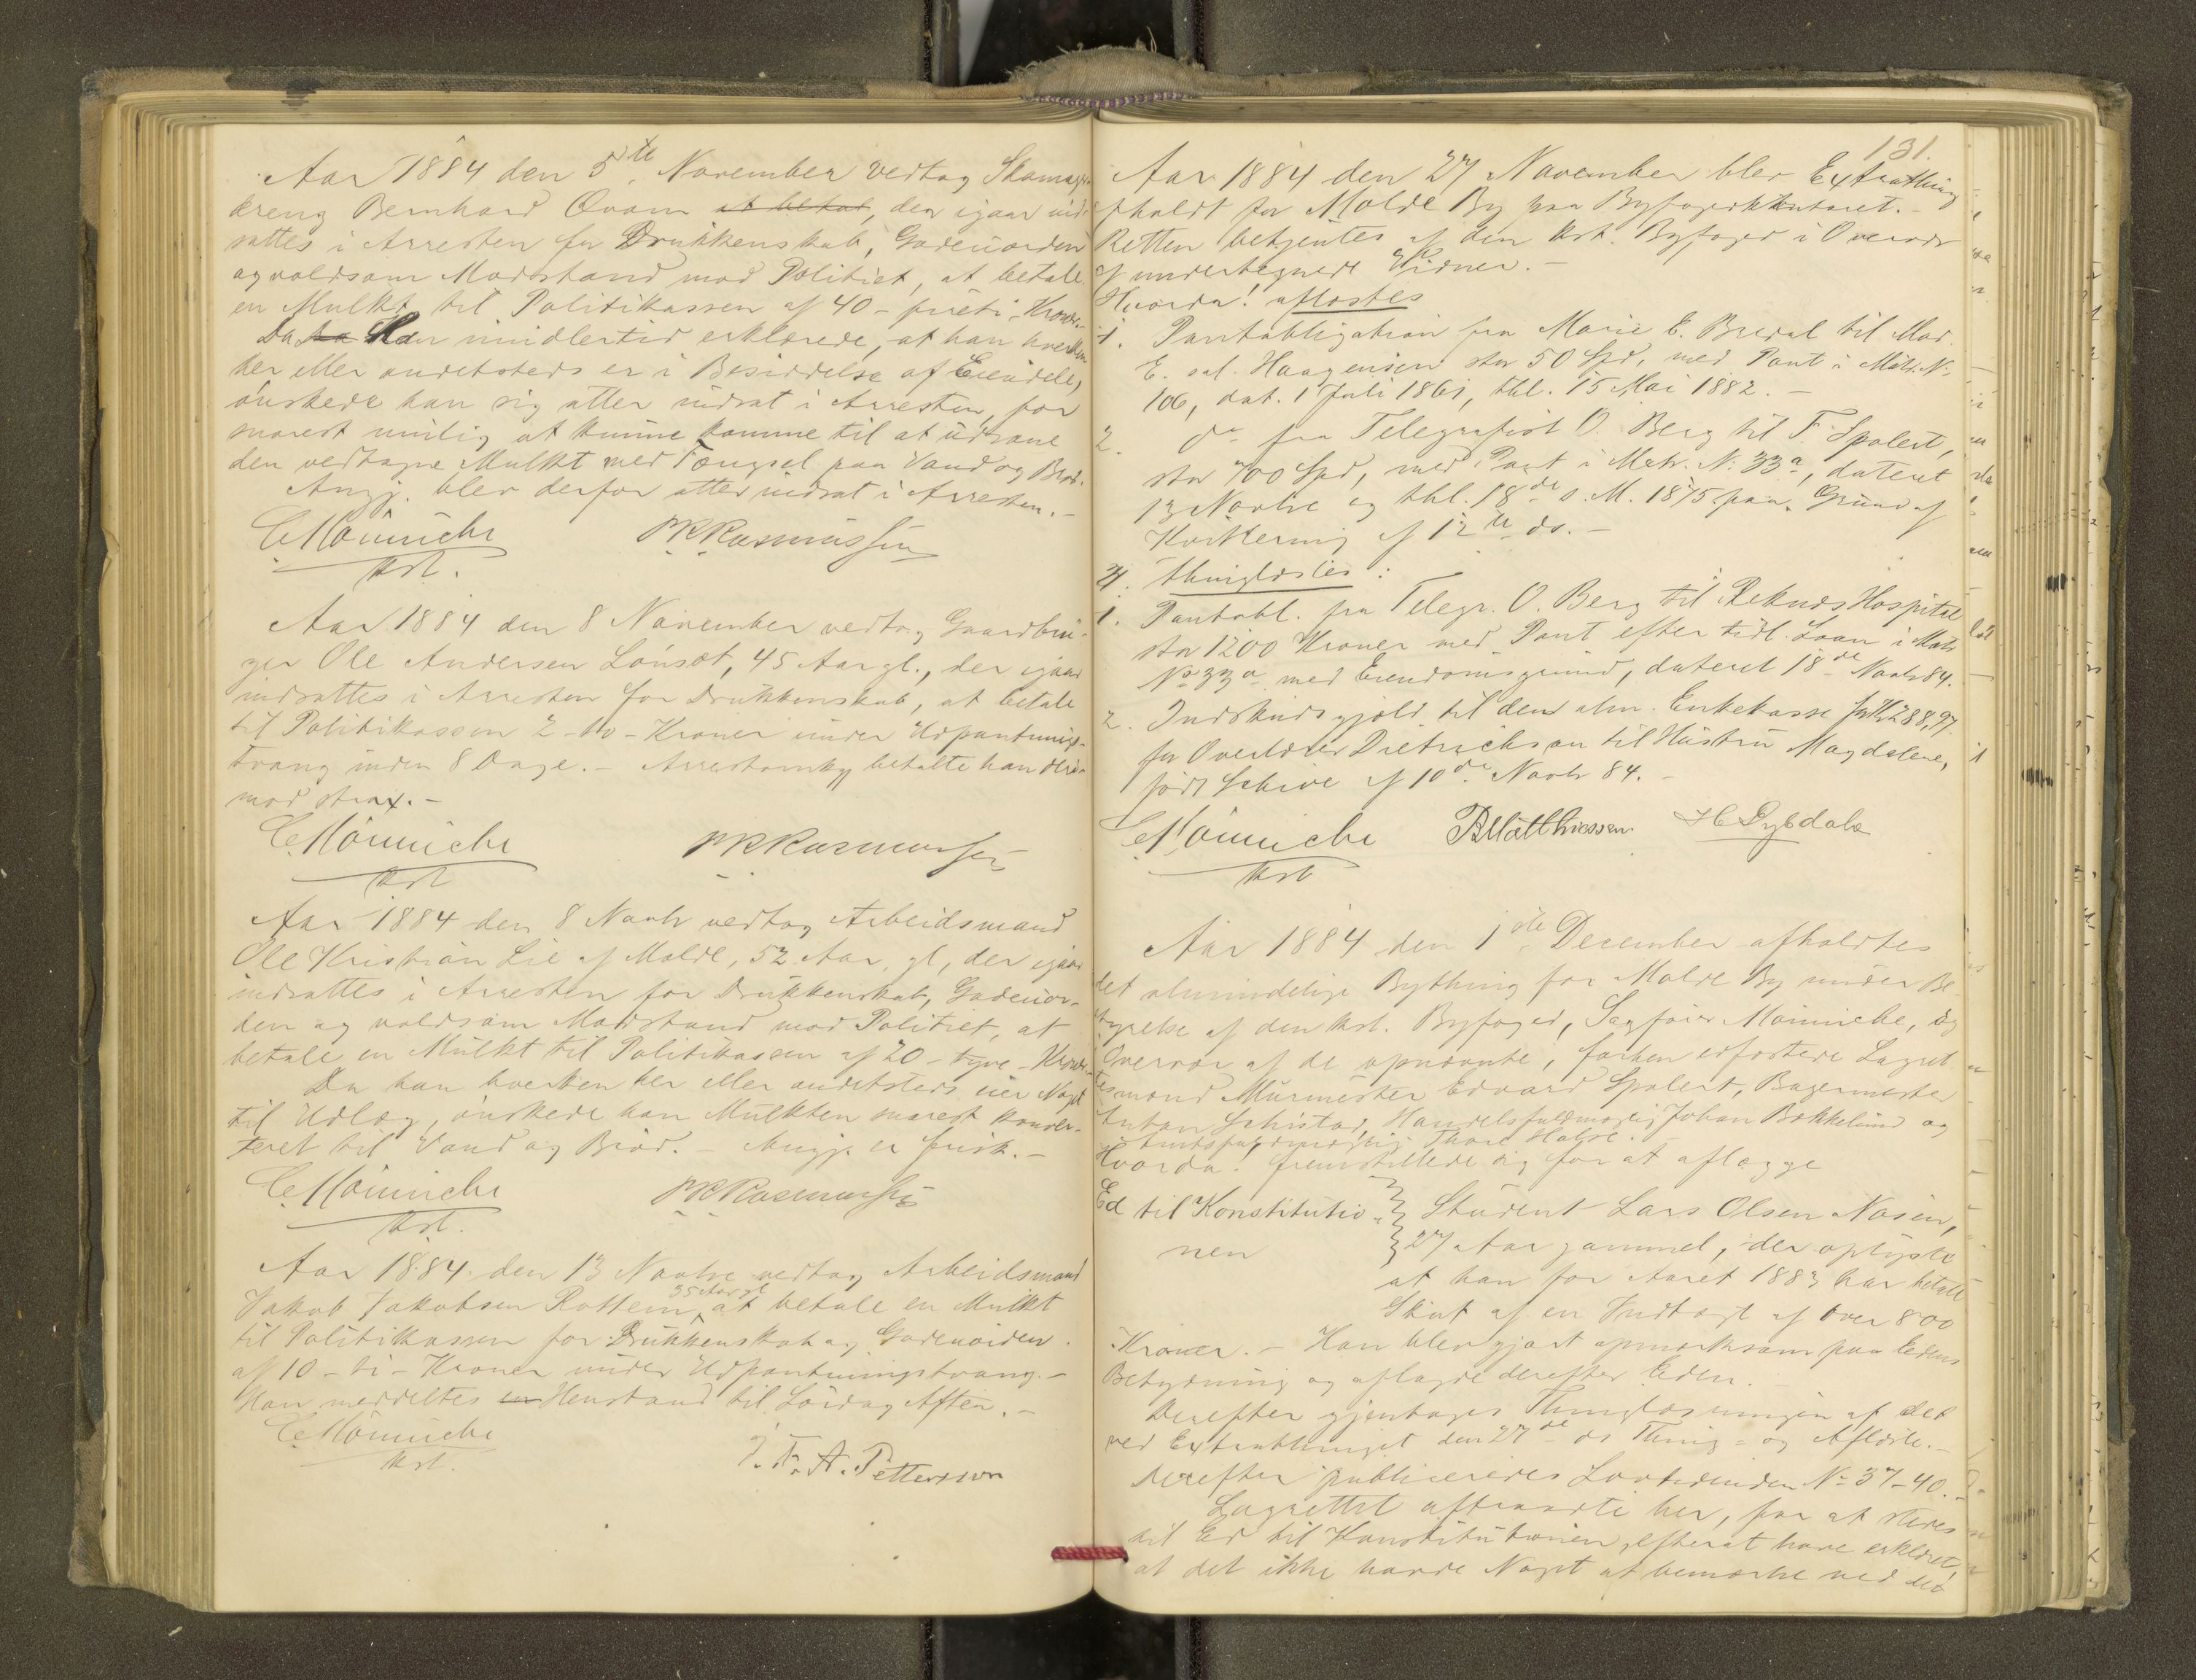 Aar 1884 den 5te November vedtog Skomager
dreng Bernhard Qvam at betal, der igaar ind-
sattes i Arresten for Drukkenskab, Gadeuorden
og voldsom Modstand mod Politiet, at betale
en Mulkt til Politikassen af 40 - firti - Kroner.
Da han imidlertid erklærede, at han hverken
her eller andetsteds er i Besiddelse af Eiendele,
ønskede han sig atter indsat i Arresten, for
snarest mulig at kunne komme til at udsone
den vedtagne Mulkt med Fængsel paa Vand og Brød.
Angj. blev derfor atter indsat i Arresten.-
C Mönniche
kst.
PKRasmussen
Aar 1884 den 8 November vedtog Gaardbru-
ger Ole Andersen Lønset, 45 Aar gl., der igaar
indsattes i Arresten for Drukkenskab, at betale
til Politikassen 2 - to - Kroner under Udpantnings-
tvang inden 8 Dage. - Arrestomkg betalte han der-
mod strax. -
C Mönniche
kst
PKRasmussen
Aar 1884 den 8 Novbr vedtog Arbeidsmand
Ole Kristian Lie af Molde, 52 Aar gl, der igaar
indsattes i Arresten for Drukkenskab, Gadeuor-
den og voldsom Modstand mod Politiet, at
betale en Mulkt til Politikassen af 20 - tyve - Kroner.
Da han hverken her eller andetsteds eier Noget
til Udlæg, ønskede han Mulkten snarest konver-
teret til Vand og Brød. - Angj. er frisk. -
C Mönniche
kst.
PKRasmussen
Aar 1884 den 13 Novbre vedtog Arbeidsmand
Jakob Jakobsen Rottem, 35 Aar gl at betale en Mulkt
til Politikassen for Drukkenskab og Gadeuorden
af 10 - ti - Kroner under Udpantningstvang. -
Han meddeltes en Henstand til Lørdag Aften. -
C Mönniche
kst.
J. F. A. Pettersson
131.
Aar 1884 den 27 November blev Extrathing
afholdt for Molde By paa Byfogedkontoret. -
Retten betjentes af den kst. Byfoged i Overvær
af undertegnede Vidner. -
Hvorda! aflæstes
1. Pantobligation fra Marie C. Bredal til Mad.
E. sal. Haagensen stor 50 Spd, med Pant i Matr. N:
106, dat. 1 Juli 1861, thl. 15 Mai 1882. -
2. do fra Telegrafist O. Berg til F. Spolert,
stor 700 Spd, med Pant i Matr. N: 33a, dateret
13 Novbre og thl. 18de s. M. 1875 paa Grund af
Kvittering af 12te ds. -
Thinglæstes:
1. Pantobl. fra Telegr. O. Berg til Reknes Hospital
stor 1200 Kroner med Pant efter tidl. Laan i Matr
No 33a med Eiendomsgrund, dateret 18de Novbr 84.
2. Indskudsgjæld til den alm. Enkekasse
for Overlærer Dietrichson til Hustru Magdalene,
født Schive af 10de Novbr 84. -
C Mönniche
kst
B Matthiessen.
H Dybdahl
Aar 1884 den 1ste December afholdtes
det almindelige Bything for Molde By under Be-
styrelse af den kst. Byfoged, Sagfører Mönniche, og
Overvær af de opnævnte, forhen edfæstede Lagret-
tesmænd Murmester Edvard Spolert, Bagermester
Anton Schistad, Handelsfuldmægtig Johan Bakkelund og
Amtsfuldmægtig Thore Halse.
Hvorda! fremstillede sig for at aflægge
Ed til Konstitutio- } Student Lars Olsen Nosen,
nen } 27 Aar gammel, der oplyste
at han for Aaret 1883 har betalt
Skat af en Indtægt af over 800
Kroner. - Han blev gjort opmærksom paa Edens
Betydning og aflagde derefter Eden.
Derefter gjentoges Thinglæsningen af det
ved Extrathinget den 27de ds Thing- og Aflæste. -
Derefter publiceredes Lovtidenden No 37-40. -
Lagrettet aftraadte her, for at stedes
til Ed til Konstitutionen, efterat have erklæret,
at det ikke havde Noget at bemærke ved det